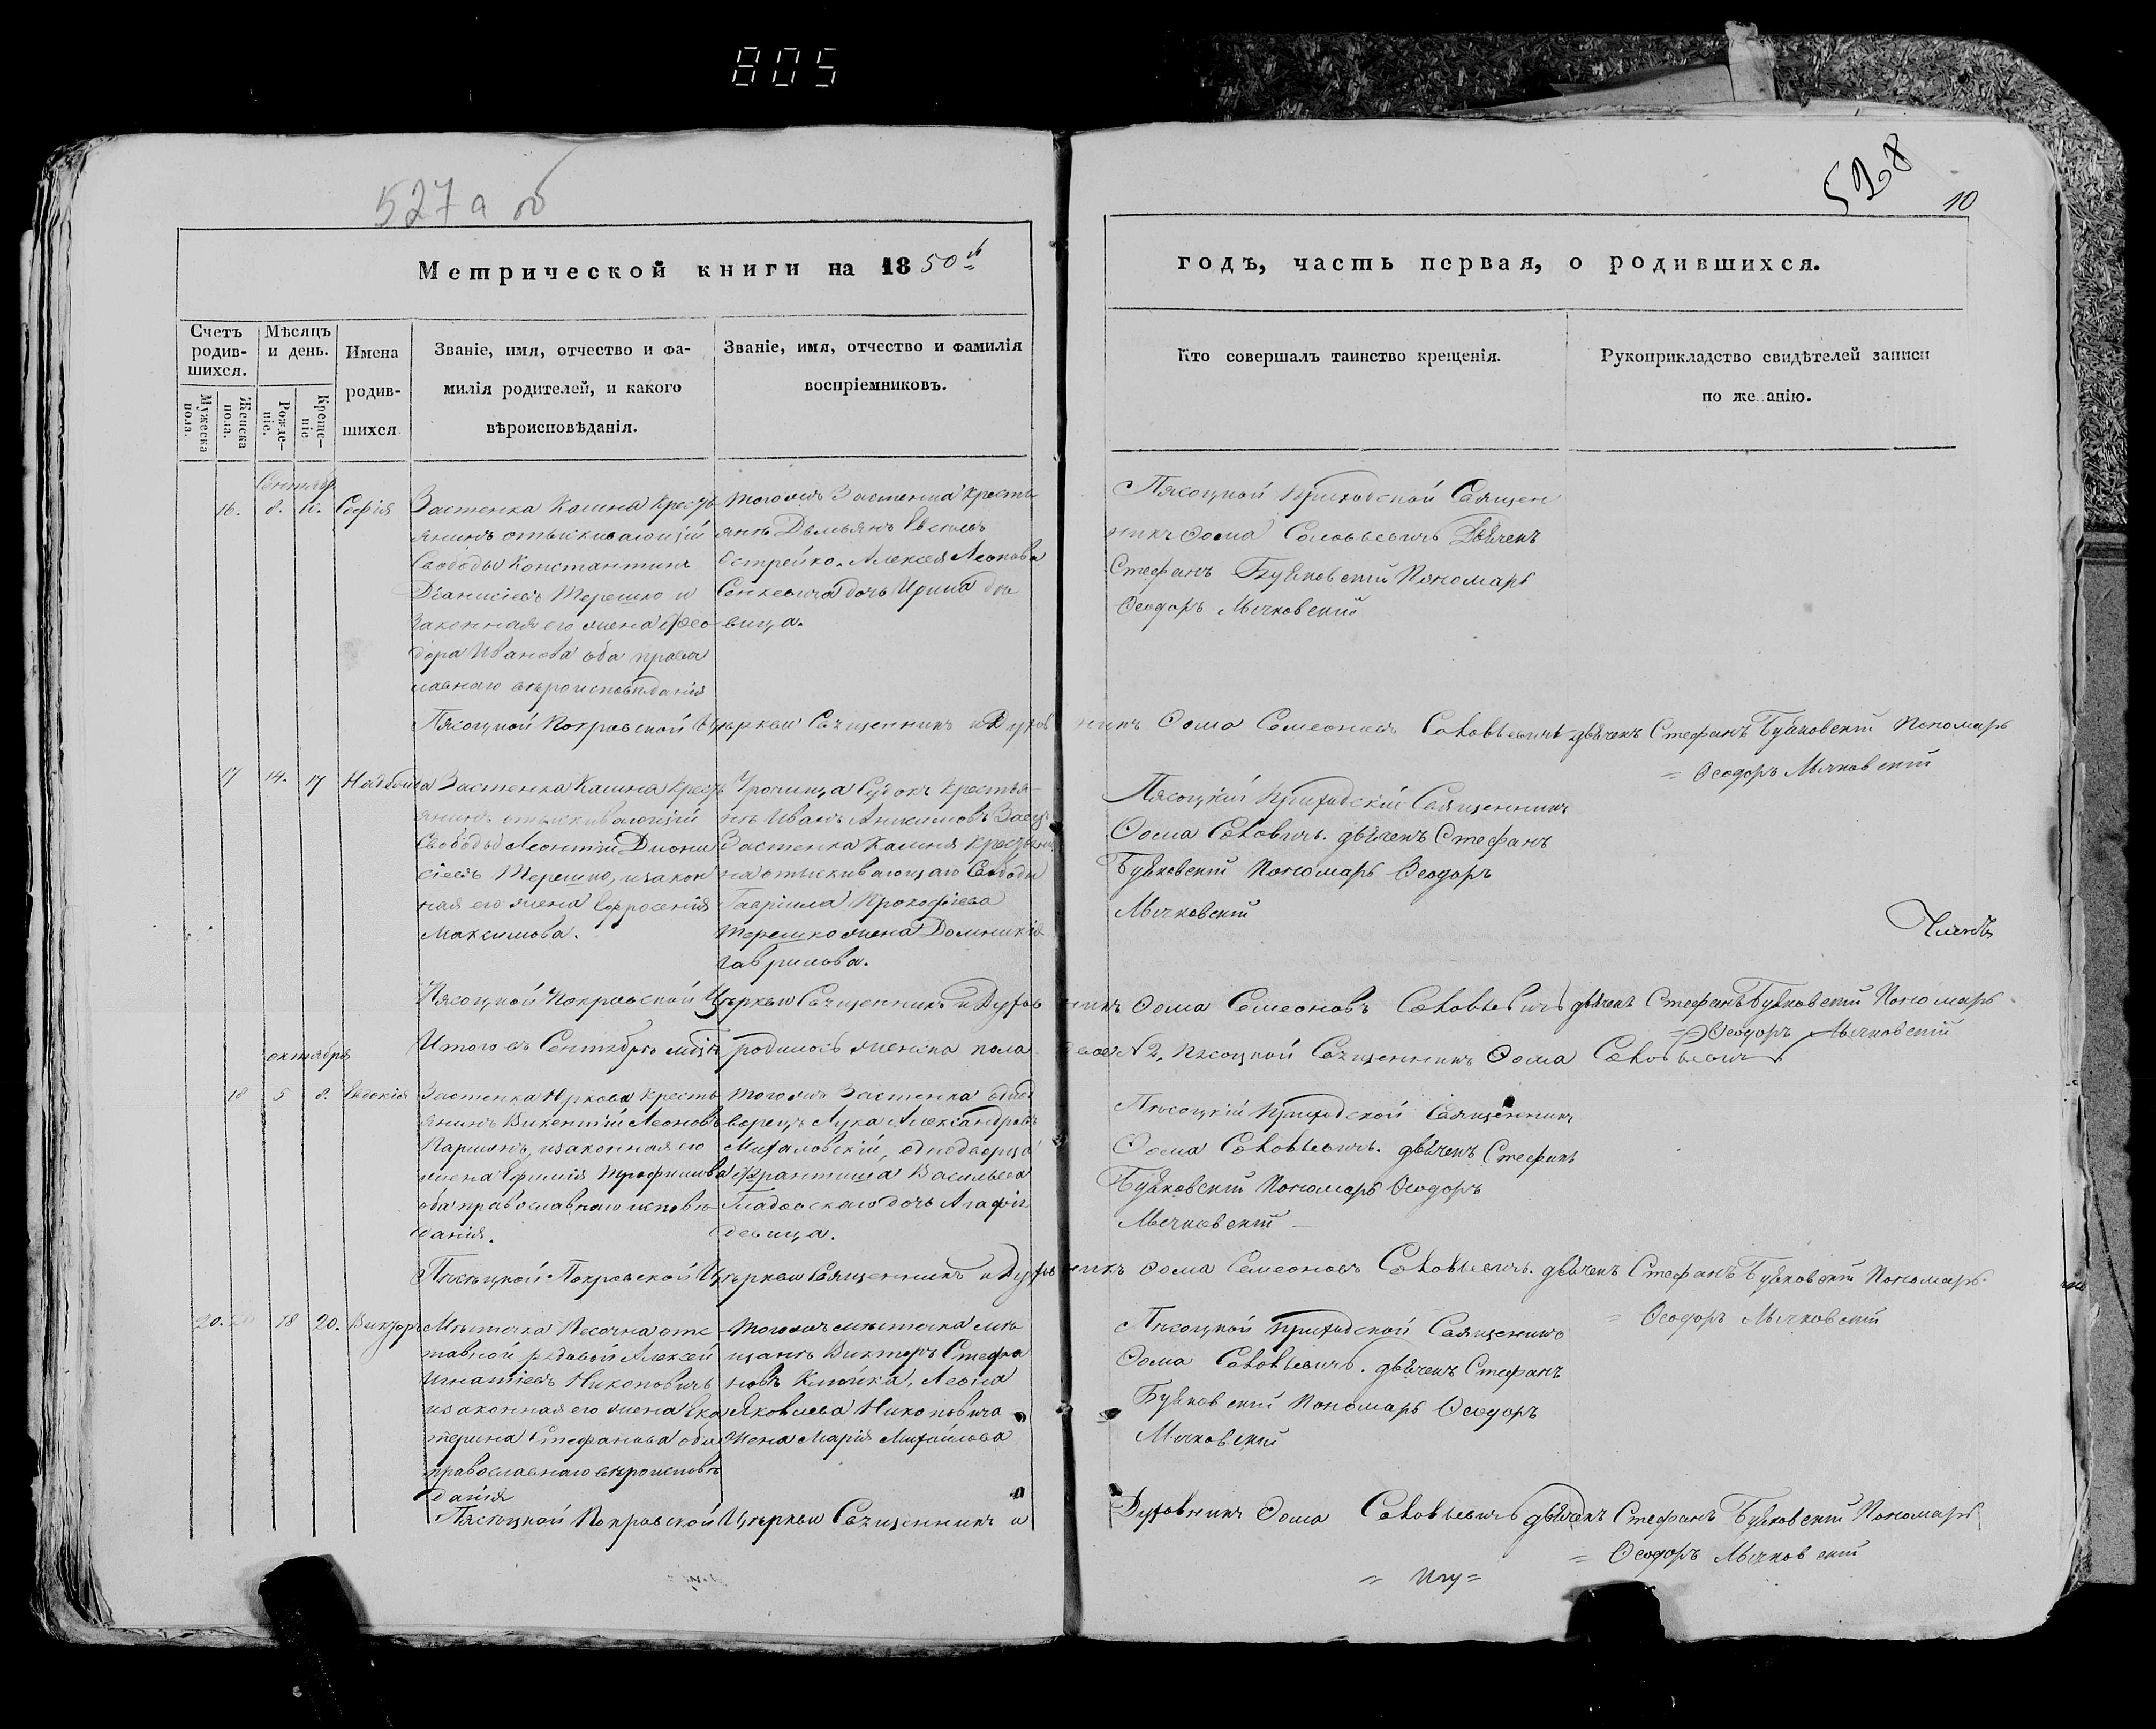 805
527 а об
528
10
Метрической книги на 1850й
годъ, часть первая, о родившихся.
Счетъ родив-шихся.
Мужеска пола.
Женска пола.
Мѣсяцъ и день.
Рожде-ніе.
Креще-ніе
Имена
родив-
шихся
Званіе, имя, отчество и фа-
милія родителей, и какого
вѣроисповѣданія.
Званіе, имя, отчество и фамилія
воспріемниковъ.
Кто совершалъ таинство крещенія.
Рукоприкладство свидѣтелей записи
по же анію.
Сентябр
16. 8. Софія
Застенка Калина Кресть
янинъ отыскивающій
Свободы Константинъ
Діанисіевъ Терешко и
законная его жена Фео
дора Иванова оба право
лавнаго вѣроисповѣданія
тогожъ Застенка Кресть
янъ Демьянъ
Острейко. Алексея Леонова
Сенкевича дочь Ирина дѣ
вица.
Пясоцкой Приходской Священ
никъ Ѳома Соловьевичъ Дьячекъ
Стефанъ Буяковскій Пономарь
Ѳеодоръ Мычковскій
Пясоцкой Покровской Церкви Священникъ и Духовникъ Ѳома Семеоновъ Соловьевичъ дьячекъ Стефанъ Буяковскій Пономарь
= Ѳеодоръ Мычковскій
17 14. 17
Застенка Калина Кресть
янинъ отыскивающій
Свободы Леонтій Диони
сіевъ Терешко, изакон
ная его жена Ефросенія
Максимова.
Урочища Кресть
нъ Иванъ Анисимовъ
Застенка Калина Крестьяни
на отыскивающаго Свободы
Гавріила Прокофіева
Терешко жена Домникія
Гаврилова.
Пясоцкій Приходскій Священникъ
Ѳома дьячекъ Стефанъ
Буяковскій Пономарь Ѳеодоръ
Мычковскій
Пясоцкой Покровской Церкви Священникъ и Духовникъ Ѳома Семеоновъ Соловьевичъ дьячекъ Стефанъ Буяковскій Пономарь
Ѳеодоръ Мычковскій
Итого въ Сентябрѣ родилось женска пола 2. Пясоцкой Священникъ Ѳома Соловьевичъ
октябрь
18 5 8. Евдокія
Застенка Кресть
янинъ Викентій Леоновъ
изаконная его
жена Ефимія Трофимова
оба православнаго исповѣ
данія.
тогожъ Застенка одно
ворецъ Лука Александровъ
Михаловскій, однодворца
Франтиша Васильева
дочь Агафія
девица.
Пясоцкій Приходской Священникъ
Ѳома Соловьевичъ. дьячекъ Стефанъ
Буяковскій Пономарь Ѳеодоръ
Мычковскій
Пясоцкой Покровской Церкви Священникъ и Духовникъ Ѳома Семеоновъ Соловьевичъ. дьячекъ Стефанъ Буяковскій Пономарь
= Ѳеодоръ Мычковскій
20. 18 20. Викторъ
Мѣстечка Песочна отс
тавной рядовой Алексей
Игнатіевъ Никоновичъ
изаконная его жена Ека
терина Стефанова оба
православнаго вѣроисповѣ
данія
тогожъ мѣстечка мѣ
щанъ Викторъ Стефа
новъ Леона
Яковлева Никоновича
жена Марія Михайлова
Пясоцкой Приходской Священникъ
Ѳома Соловьевичъ. дьячекъ Стефанъ
Буяковскій Пономарь Ѳеодоръ
Мычковскій
Пясоцкой Покровской Церкви Священникъ и Духовникъ Ѳома Соловьевичъ дьячекъ Стефанъ Буяковскій Пономарь
= Ѳеодоръ Мычковскій